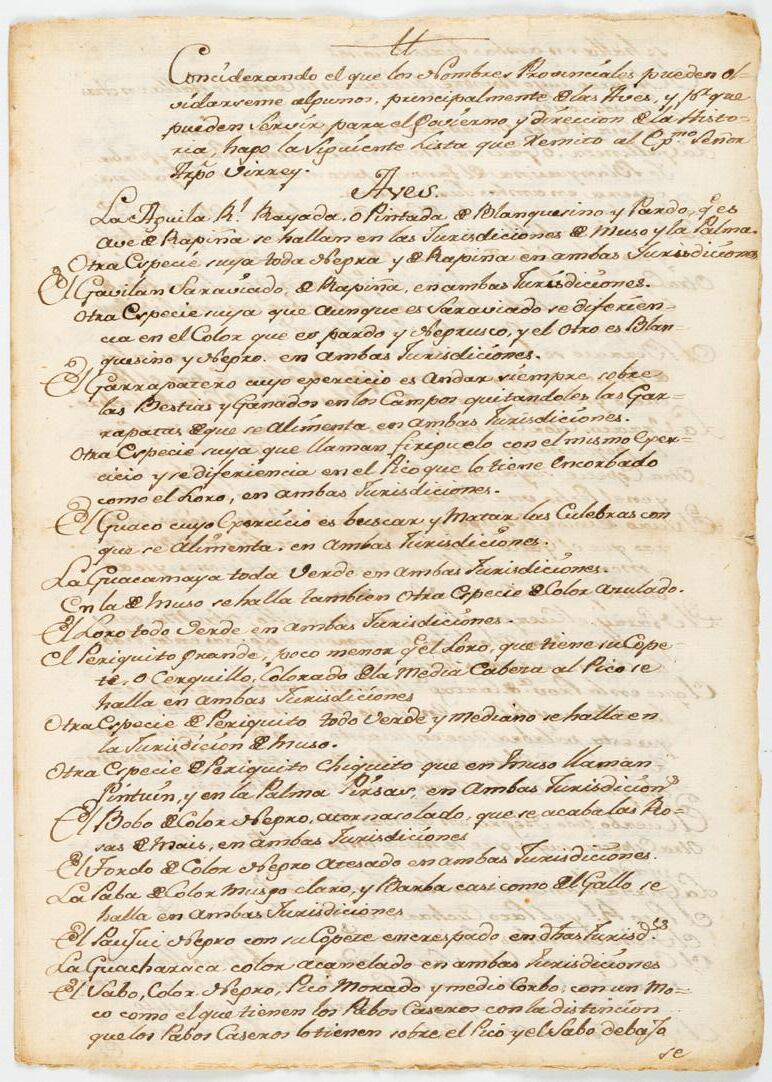 Conciderando el que los Nombres Provinciales pueden ol-
vidarseme algunos, principalmente de las Aves, y pr. que
pueden servir para el Govierno y direcion de la Histo-
ria, hago la siguiente Lista que Remito al Exmo. Señor
Arpo Virrey.
Aves.
La Aguila Rl. Rayada, o Pintada de Blanquesino y Pardo, qe. es
ave de Rapiña se hallan en las Jurisdiciones de Muso y la Palma.
Otra Especie suya toda Negra y de Rapiña en ambas Jurisdiciones
El Gavilan Saraviado, de Rapiña, en ambas Jurisdiciones.
Otra Especie suya que aunque es Saraviado se diferien-
cia en el Color que es pardo y Negrusco, y el otro es Blan-
quesino y Negro. en ambas Jurisdiciones.
El Garrapatero cuyo exercicio es andar siempre sobre
las Bestias y Ganados en los Campos quitandoles las Gar-
rapatas de que se Alimenta en ambas Jurisdiciones.
Otra Especie suya que llaman firiguelo con el mismo Exer-
cicio y se diferiencia en el Pico que lo tiene encorbado
como el Loro, en ambas Jurisdiciones.
El Guaco cuyo Exercicio es buscar y Matar las Culebras con
que se alimenta. en ambas Jurisdiciones.
La Guacamaya toda Verde en ambas Jurisdiciones.
En la de Muso se halla tambien otra Especie de Color Azulado.
El Loro todo Verde en ambas Jurisdiciones.
El Periquito Grande, poco menor qe. el Loro, que tiene su Cope-
te, o Cerquillo, Colorado de la Media Cabeza al Pico se
halla en ambas Jurisdiciones
Otra Especie de Periquito todo Verde y Mediano se halla en
la Jurisdicion de Muso.
Otra Especie de Periquito Chiquito que en Muso llaman
Pintuin, y en la Palma en ambas Jurisdiciones
El Bobo de Color Negro, atornasolado, que se acaba las Ro-
sas de Mais, en ambas Jurisdiciones
El Tordo de Color Negro Atesado en ambas Jurisdiciones.
La Paba de Color Musgo claro, y Barba casi como de el Gallo se
halla en ambas Jurisdiciones
El Paujui Negro con su Copete encrespado en dhas Jurisdes.
La Guacharaca color acanelado en ambas Jurisdiciones
El Sabo, Color Negro, Pico Morado y medio Corbo, con un Mo-
co como el que tienen los Pabos Caseros con la distincion
que los Pabos Caseros lo tienen sobre el Pico y el Sabo debaJo
se